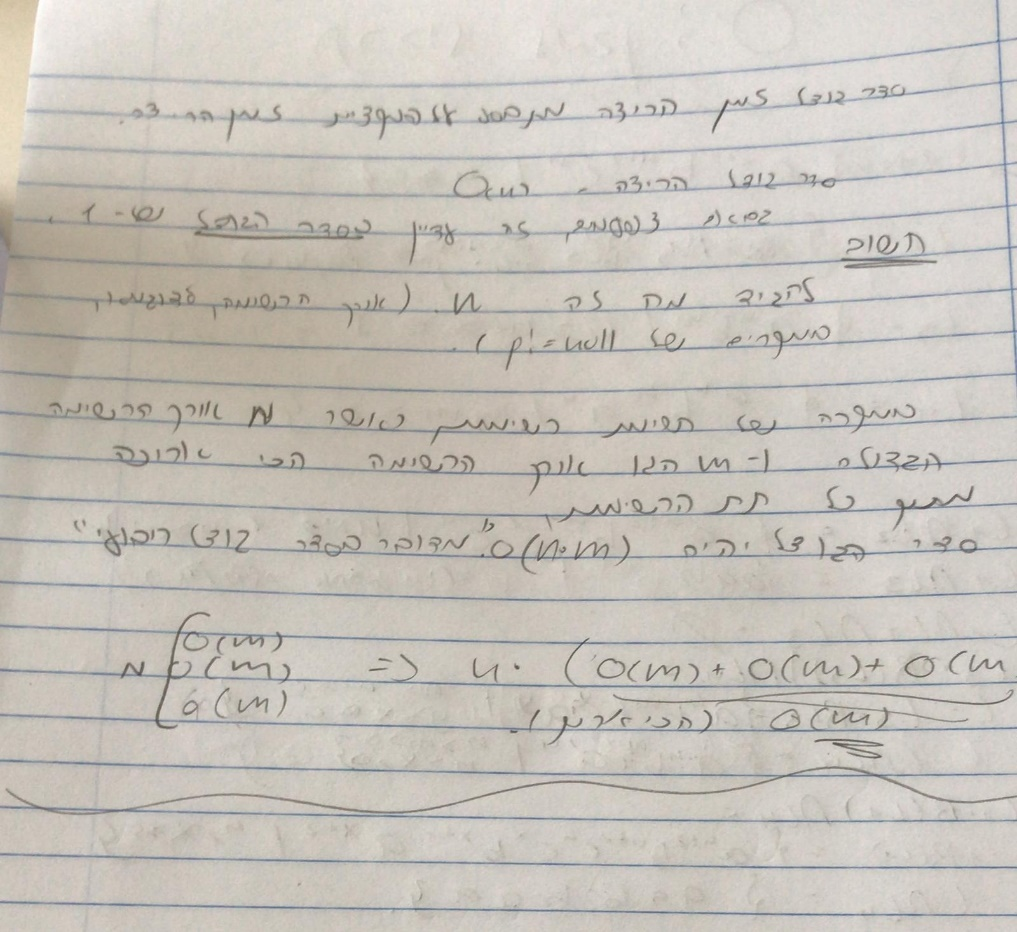 סדר גודל זמן הריצה מתבסס על פונקציית זמן הריצה.
סדר גודל הריצה -
זה עדיין בסדר הגודל של - 1.
חשוב
להגיד מה זה n. (אורך הרשימה, לדוגמה,
במקרים של p!=null).
במקרה של רשימת רשימות כאשר N אורך הרשימה
הגדולה ו-m הנו אורך הרשימה הכי ארוכה
מתוך כל תת הרשימות,
סדר הגודל יהיה O(n·m). "מדובר בסדר גודל ריבועי"
N [ O(m) O(m) O(m) => n· (O(m)+ O(m)+ O(m
O(m) (הכי ארוך).